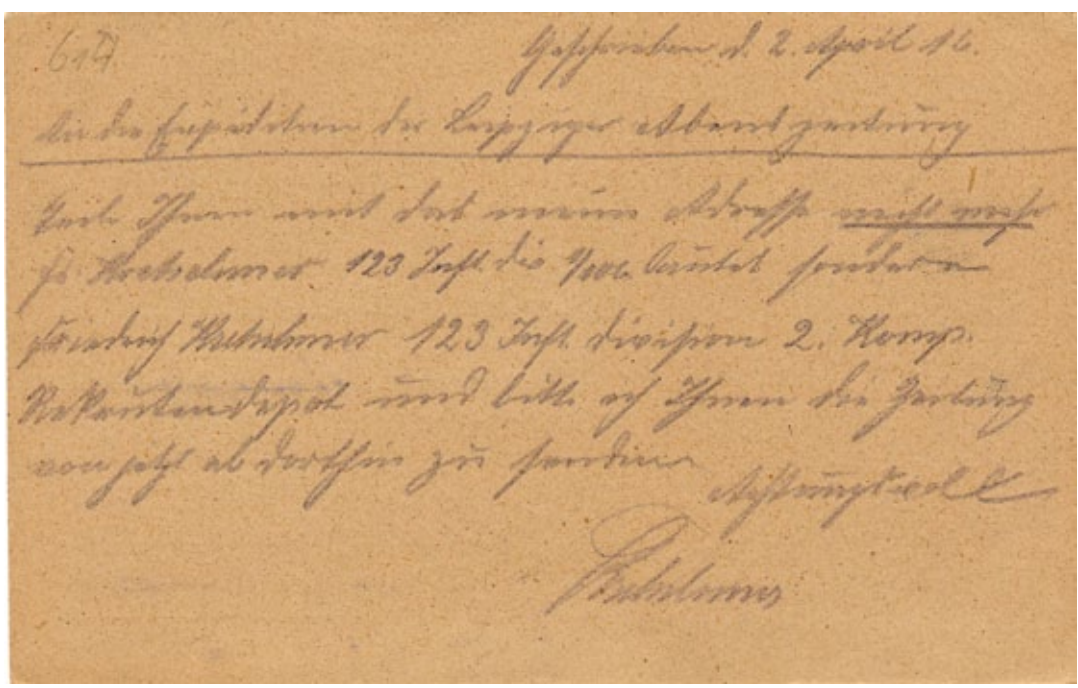 Geschrieben d. 2. April 16.
An die Expedition der Leipziger Abendzeitung
Teile Ihnen mit das meine Adresse nicht mehr
Fr. Kretschmer 123 Inft. div. sondern
Friedrich Kretschmer 123 Inft. division 2. Komp.
Rekrutendepot und bitte ich Ihnen die Zeitung
von jetzt ab dorthin zu senden
Achtungsvoll
Kretschmer